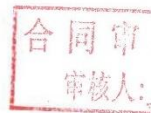 合同审
审核人：